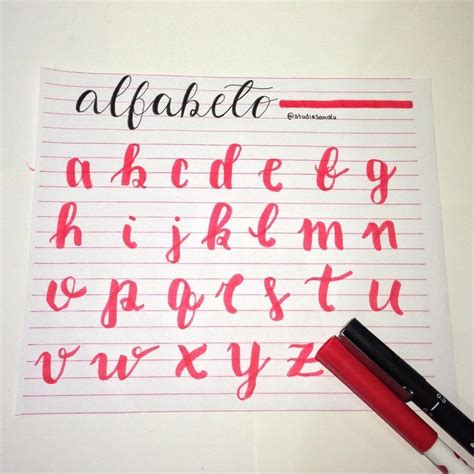 alfabeto
@studiesanalu
a b c d e f g
h i j k l m n
o p q r s t u
v w x y z